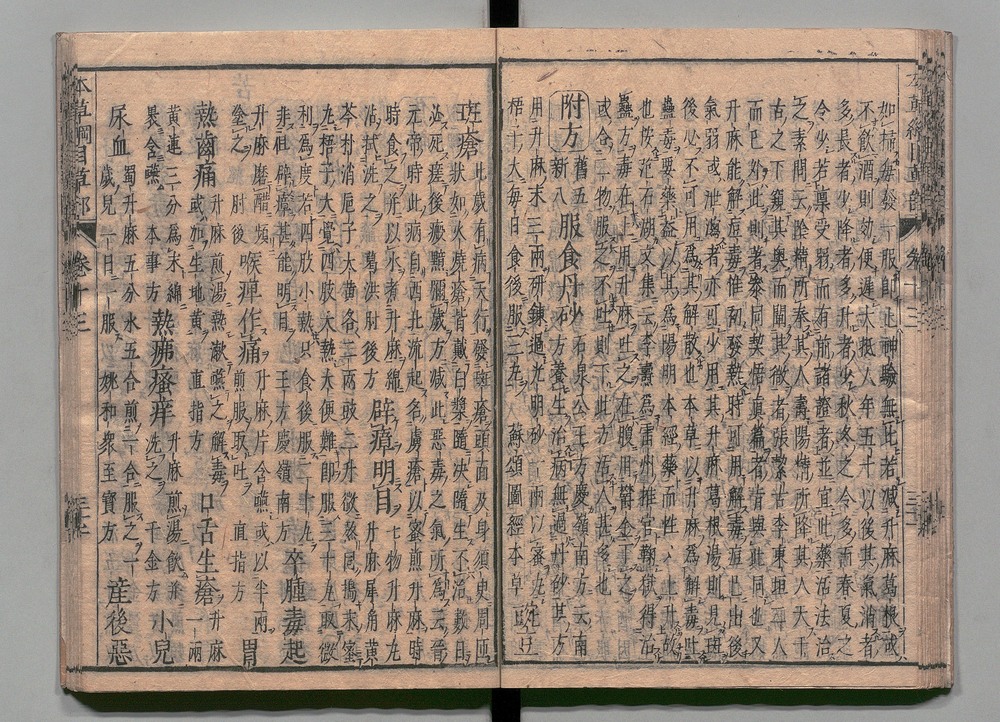 如
不飲酒則
多長者少降者多升者少秋冬之令多而春夏之
令少若稟受弱而有前諸證者並宜此藥活法治
之素問云陰精所奉其人壽陽精所降其人夭千
古之下窺其奧而闡其微者張潔古李東垣二人
而已外此則著參同契悟真篇者旨與此同也又
升麻能解痘毒惟初發熱時可用解毒痘已出後
氣弱或泄瀉者亦可少用其升麻葛根湯則見斑
後必不可用為其解散也本草以升麻為解毒吐
蠱毒要藥蓋以其為陽明本經藥而性又上升故
也按范石湖文集云李燾為雷州推官鞫獄得治
蠱方毒在上用升麻吐之在腹用鬱金下之
或合二物服之不吐則下此方活人甚多也
附方 舊五新八 服食丹砂 石泉公王方慶嶺南方云南
方養生治病無過丹砂其方
用升麻末三兩研鍊過光明砂一兩以蜜丸
梧子大每日食後服三丸 蘇頌圖經本草
斑瘡 比歲有病天行發斑瘡頭面及身須臾周匝
狀如火燒瘡皆戴白漿隨決隨生不治數日
必死瘥後瘢黯彌歲方滅此惡毒之氣所為云晉
元帝時此病自西北流起名虜瘡以蜜煎升麻時
時食之并以水煮升麻綿
沾拭洗之 葛洪肘後方 辟瘴明目 七物升麻丸
升麻犀角黃
芩朴消卮子大黃各二兩豉二升微熬同搗末蜜
丸梧子大覺四肢大熱大便難即服三十丸取微
利為度若四肢小熱只食後服二十丸
非但辟瘴甚能明目 王方慶嶺南方 卒腫毒起
升麻磨醋頻
塗之 肘後 喉痺作痛 升麻片含嚥或以半兩
煎服取吐 直指方 胃
熱齒痛 升麻煎湯熱漱嚥之解毒
或加生地黃 直指方 口舌生瘡 升麻一兩
黃連三分為末綿
裹含嚥 本事方 熱痱瘙痒 升麻煎湯飲并
洗之 千金方 小兒
尿血 蜀升麻五分水五合煎一合服之一
歲兒一日一服 姚和衆至寶方 產後惡
本草綱目草部
卷十三